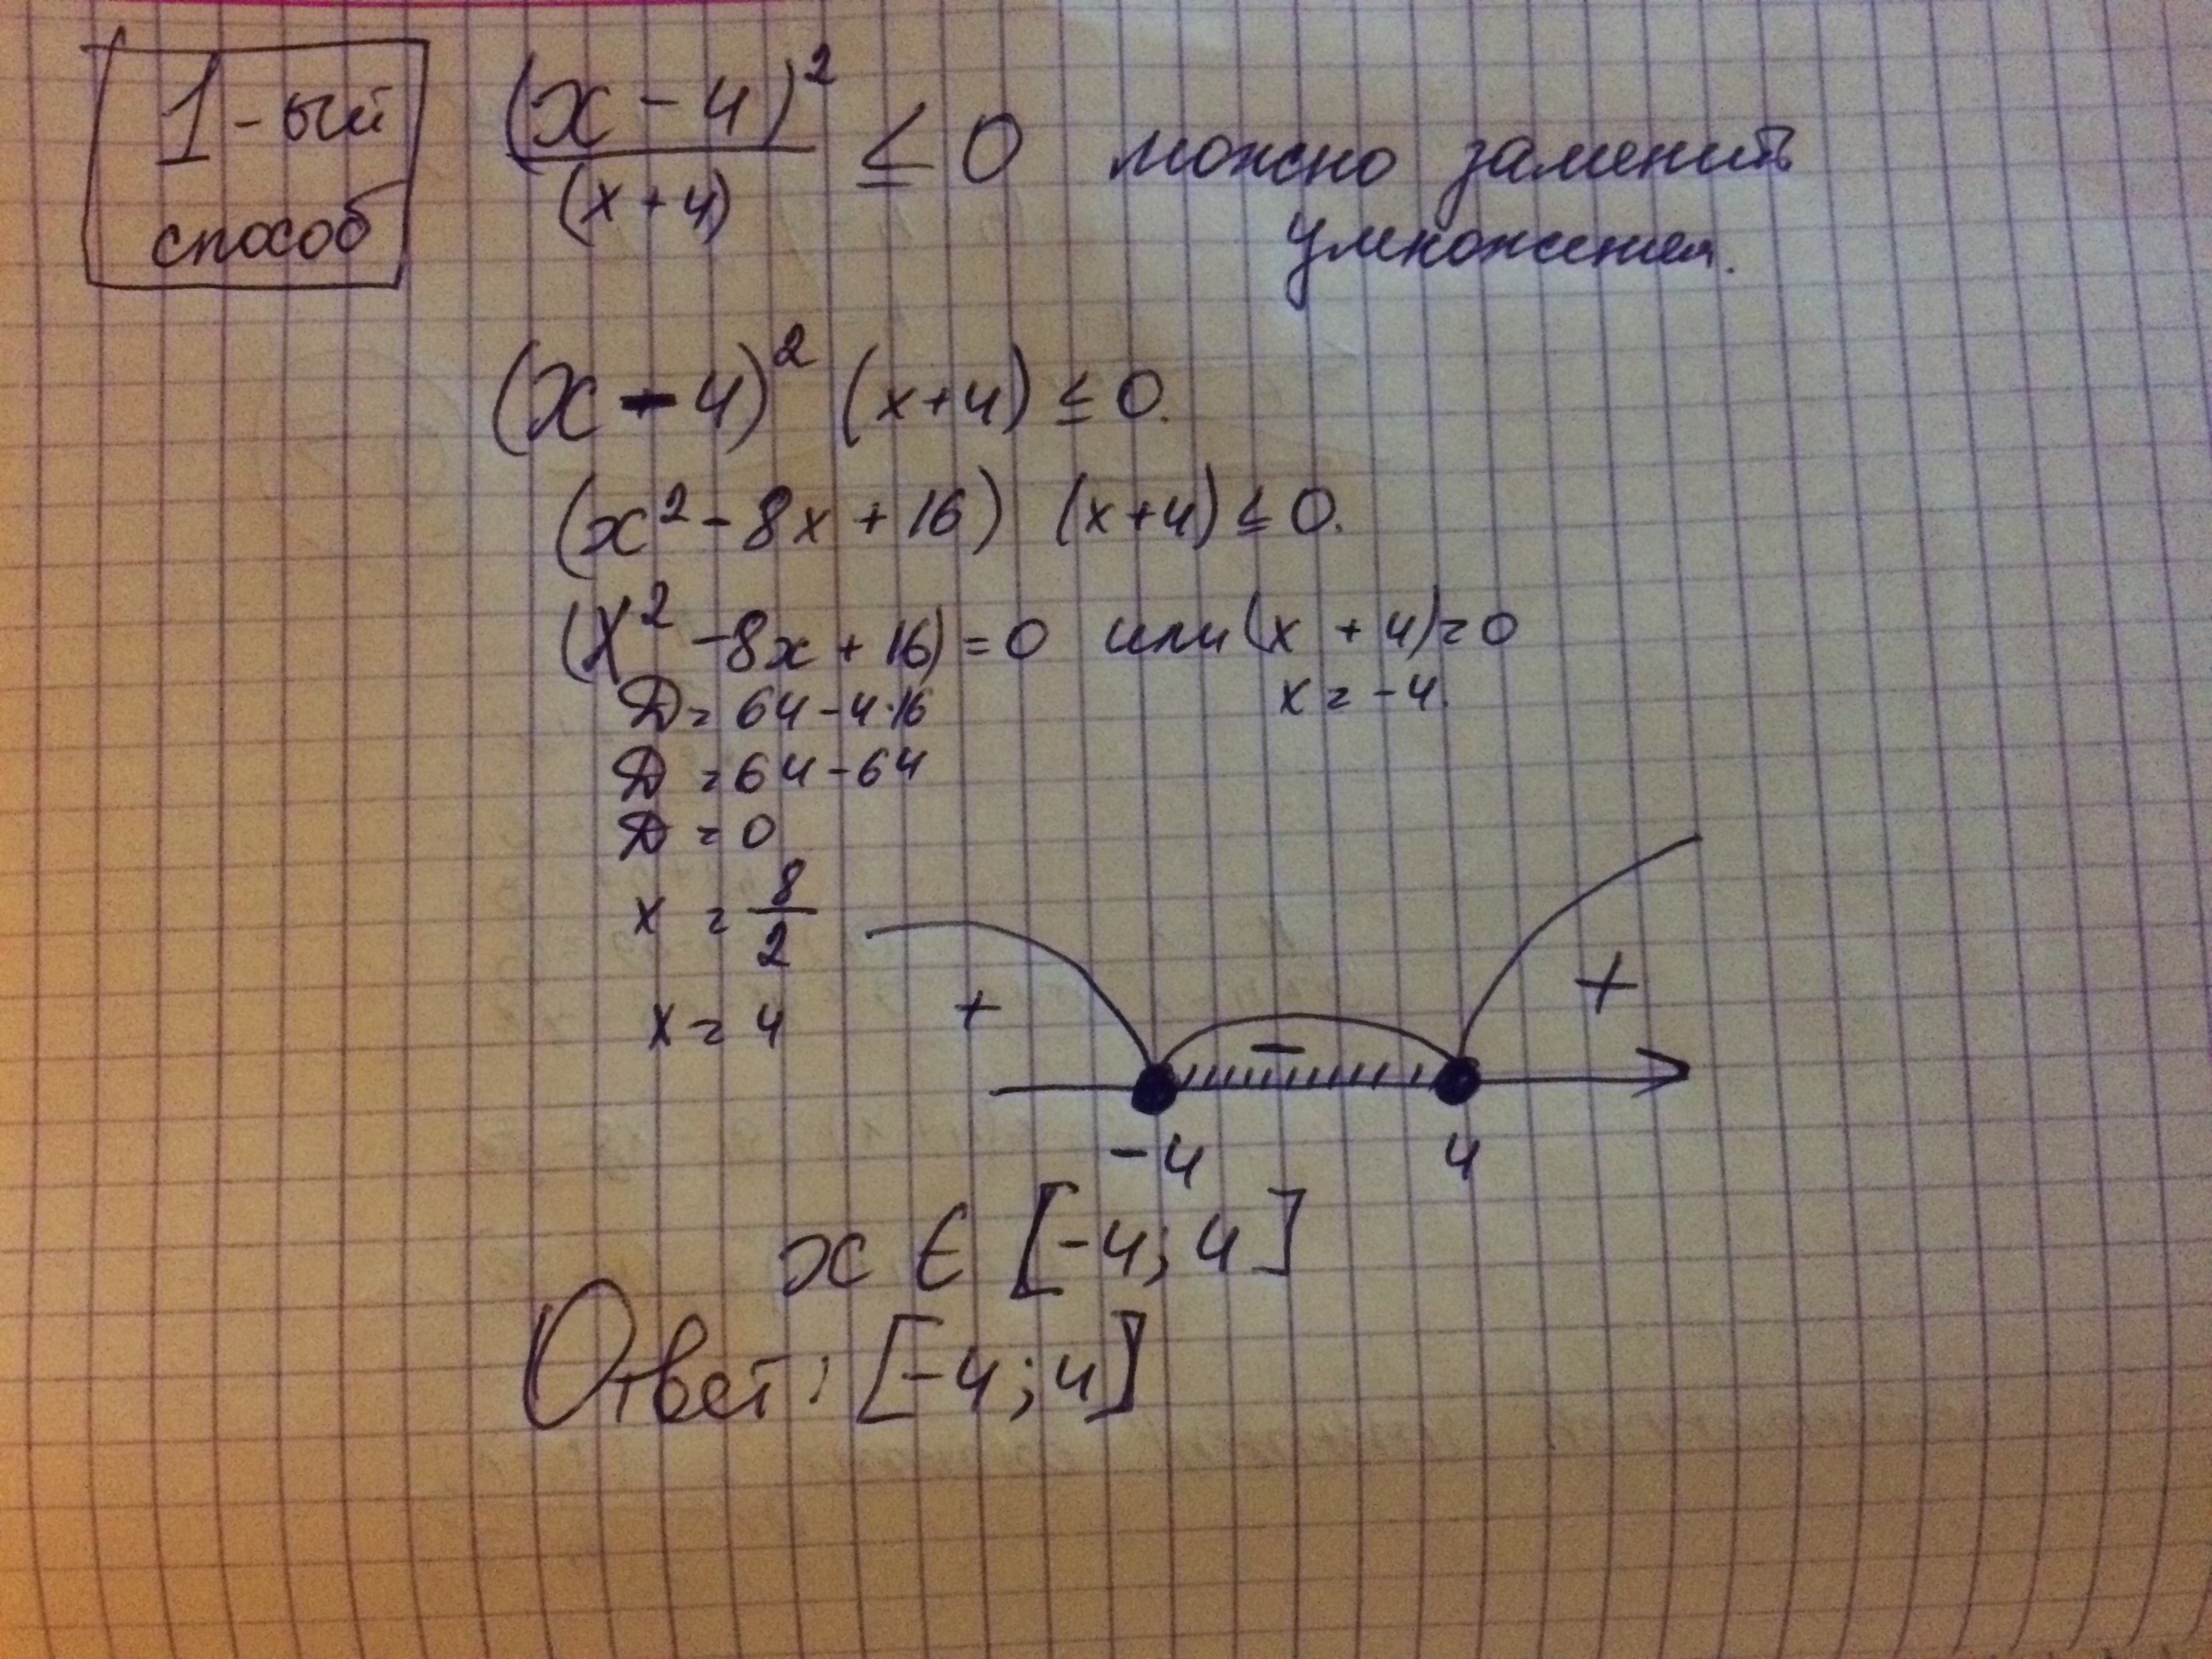 1-ый способ
(x - 4)² / (x + 4) ≤ 0 можно заменить
умножения.
(x - 4)² (x+4) ≤ 0.
(x² - 8x + 16) (x+4) ≤ 0.
(x² - 8x + 16) = 0 или (x + 4) = 0
D = 64 - 4·16 x = -4.
D = 64 - 64
D = 0
x = 8/2
x = 4
+ - +
-4 4
x ∈ [-4; 4]
Ответ: [-4; 4]